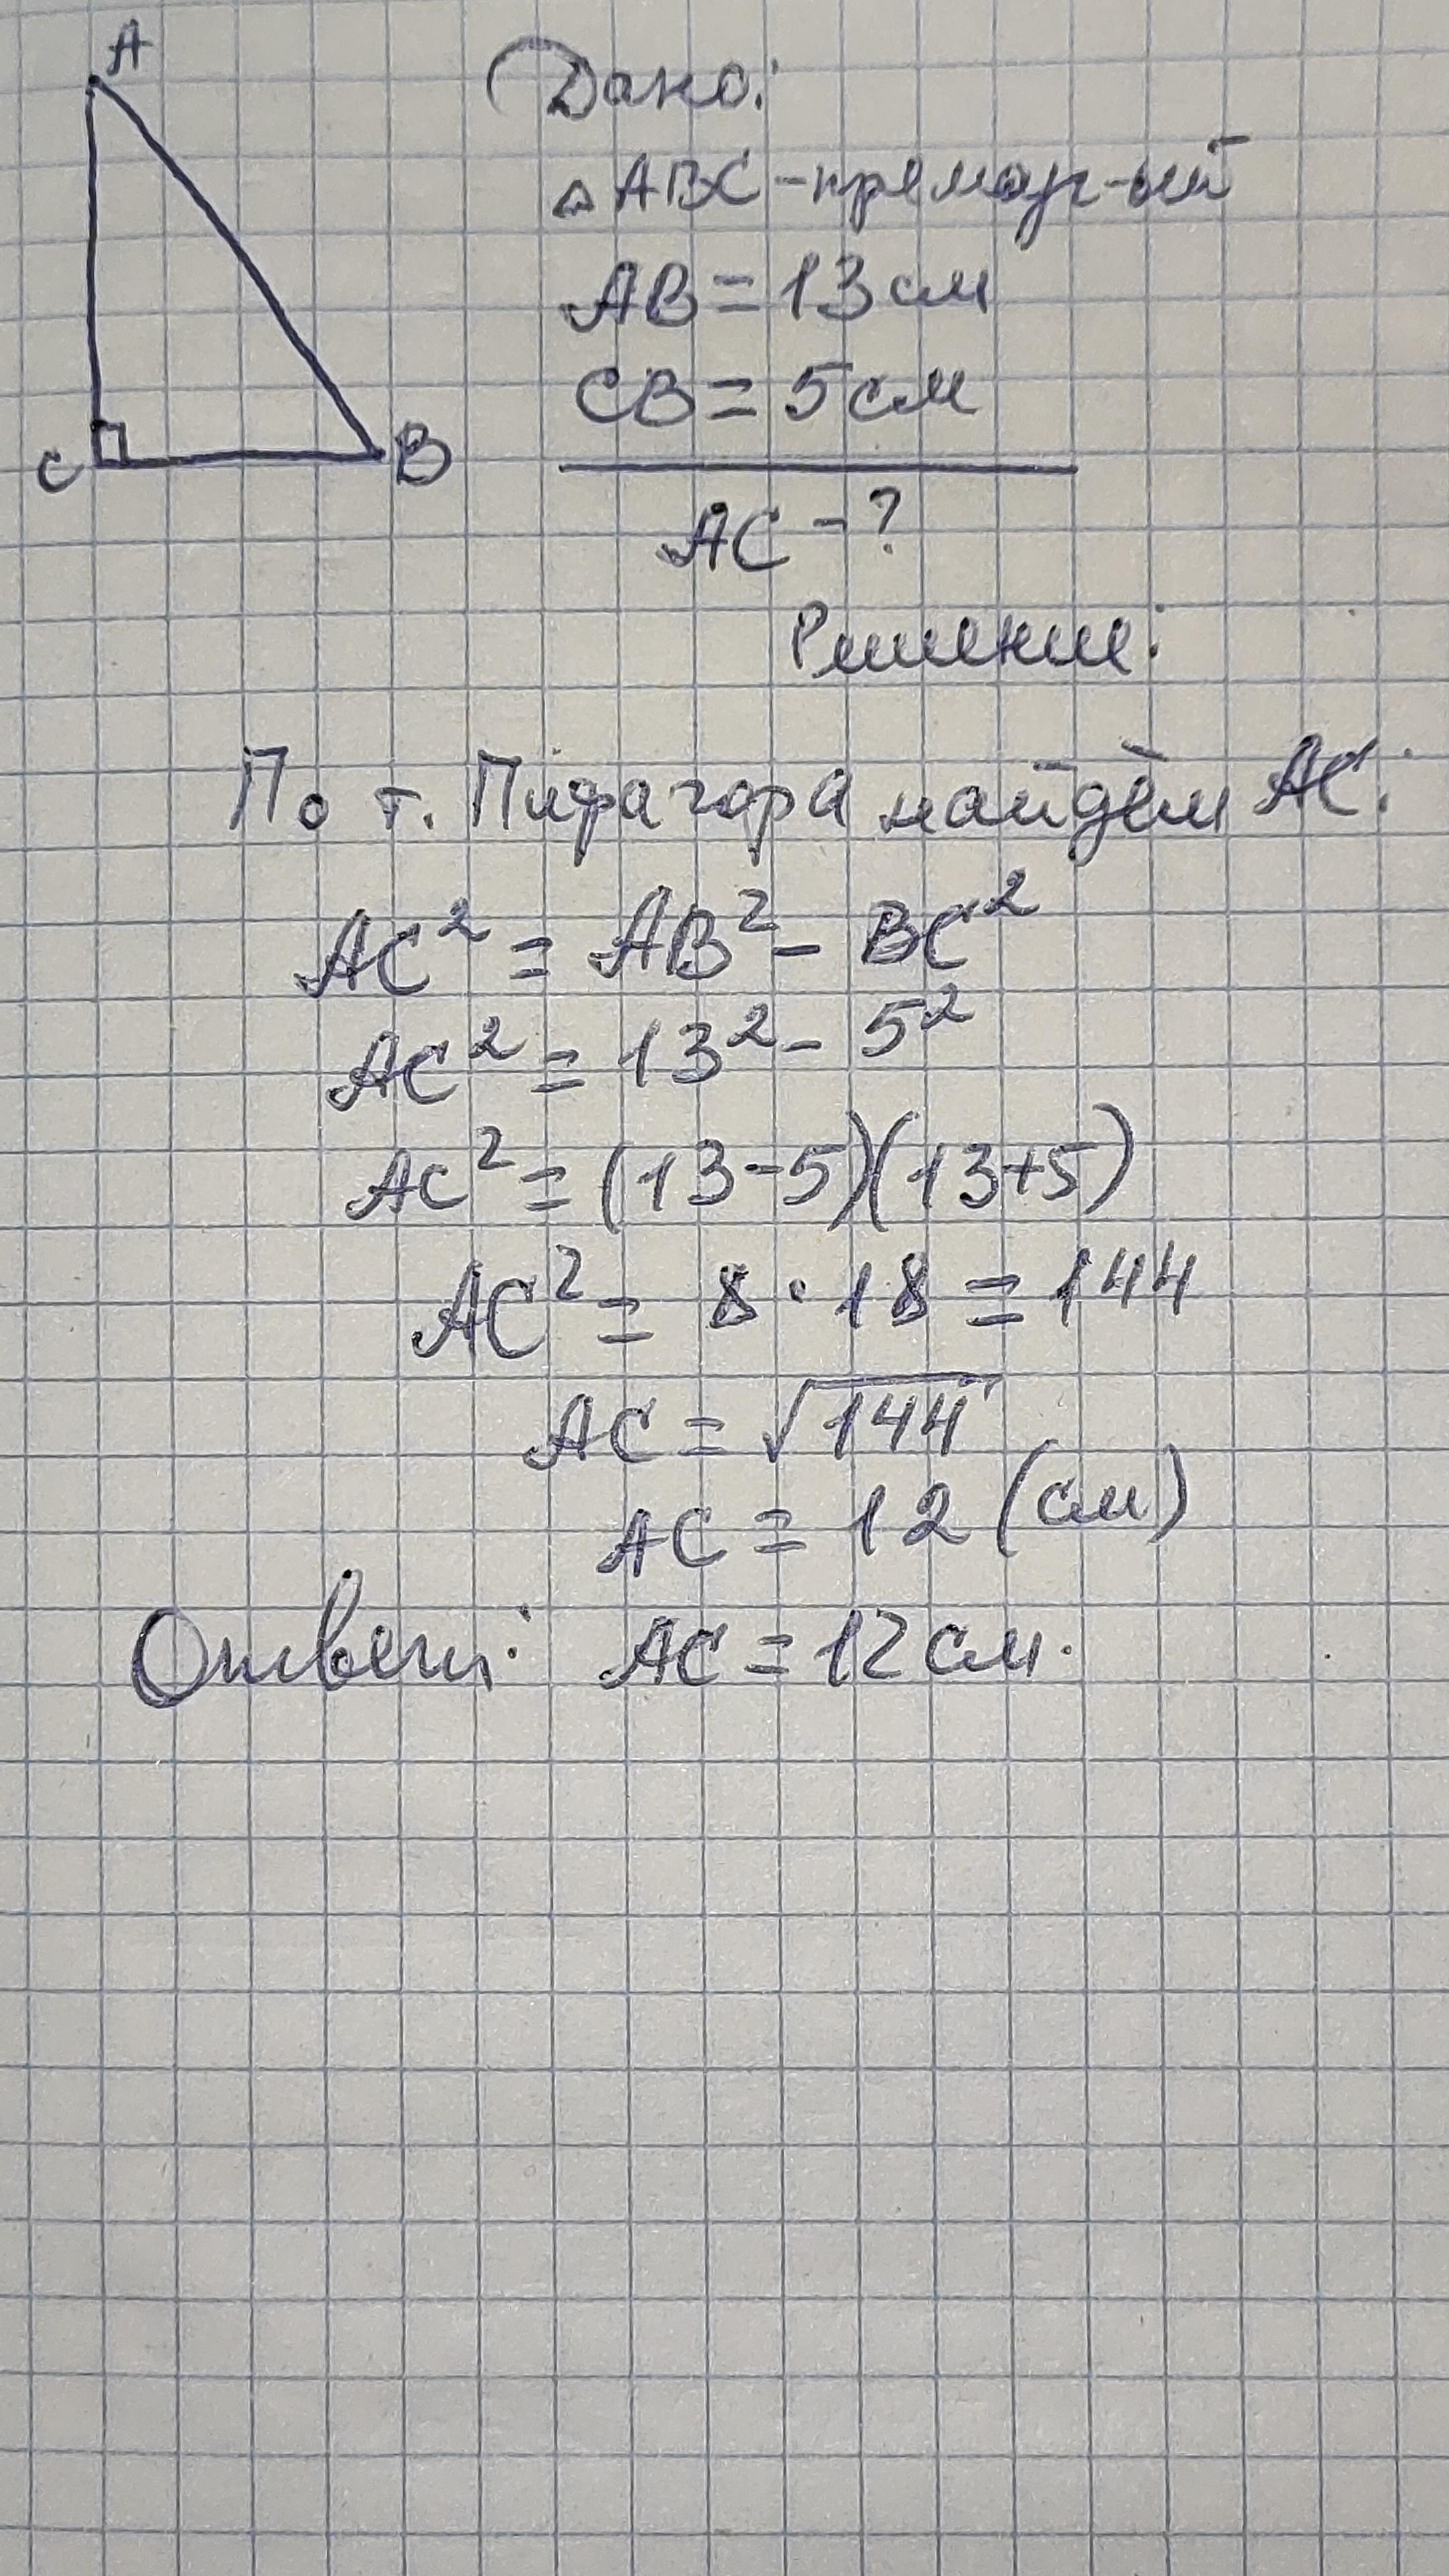 A
C
B
Дано:
△ABC - премоуг-ый
AB = 13 см
CB = 5 см
AC - ?
Решение:
По т. Пифагора найдём AC:
AC² = AB² - BC²
AC² = 13² - 5²
AC² = (13-5)(13+5)
AC² = 8 · 18 = 144
AC = √144
AC = 12 (см)
Ответ: AC = 12 см.